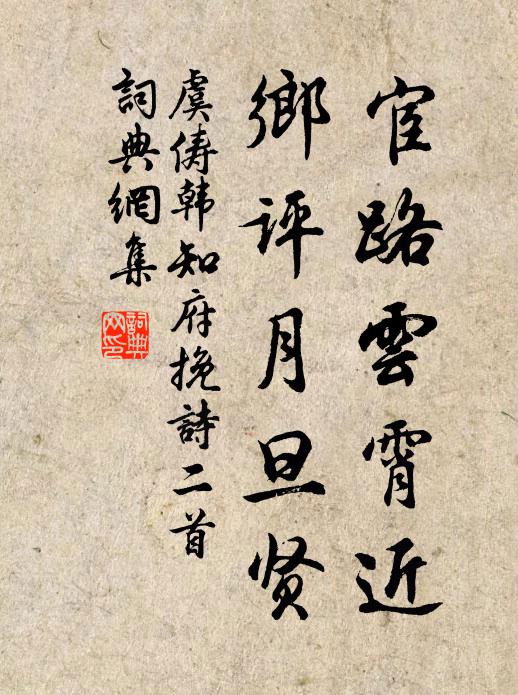 宦路雲霄近
鄉評月旦贤
虞儔韩知府挽詩二首
詞典網集
詞典网印